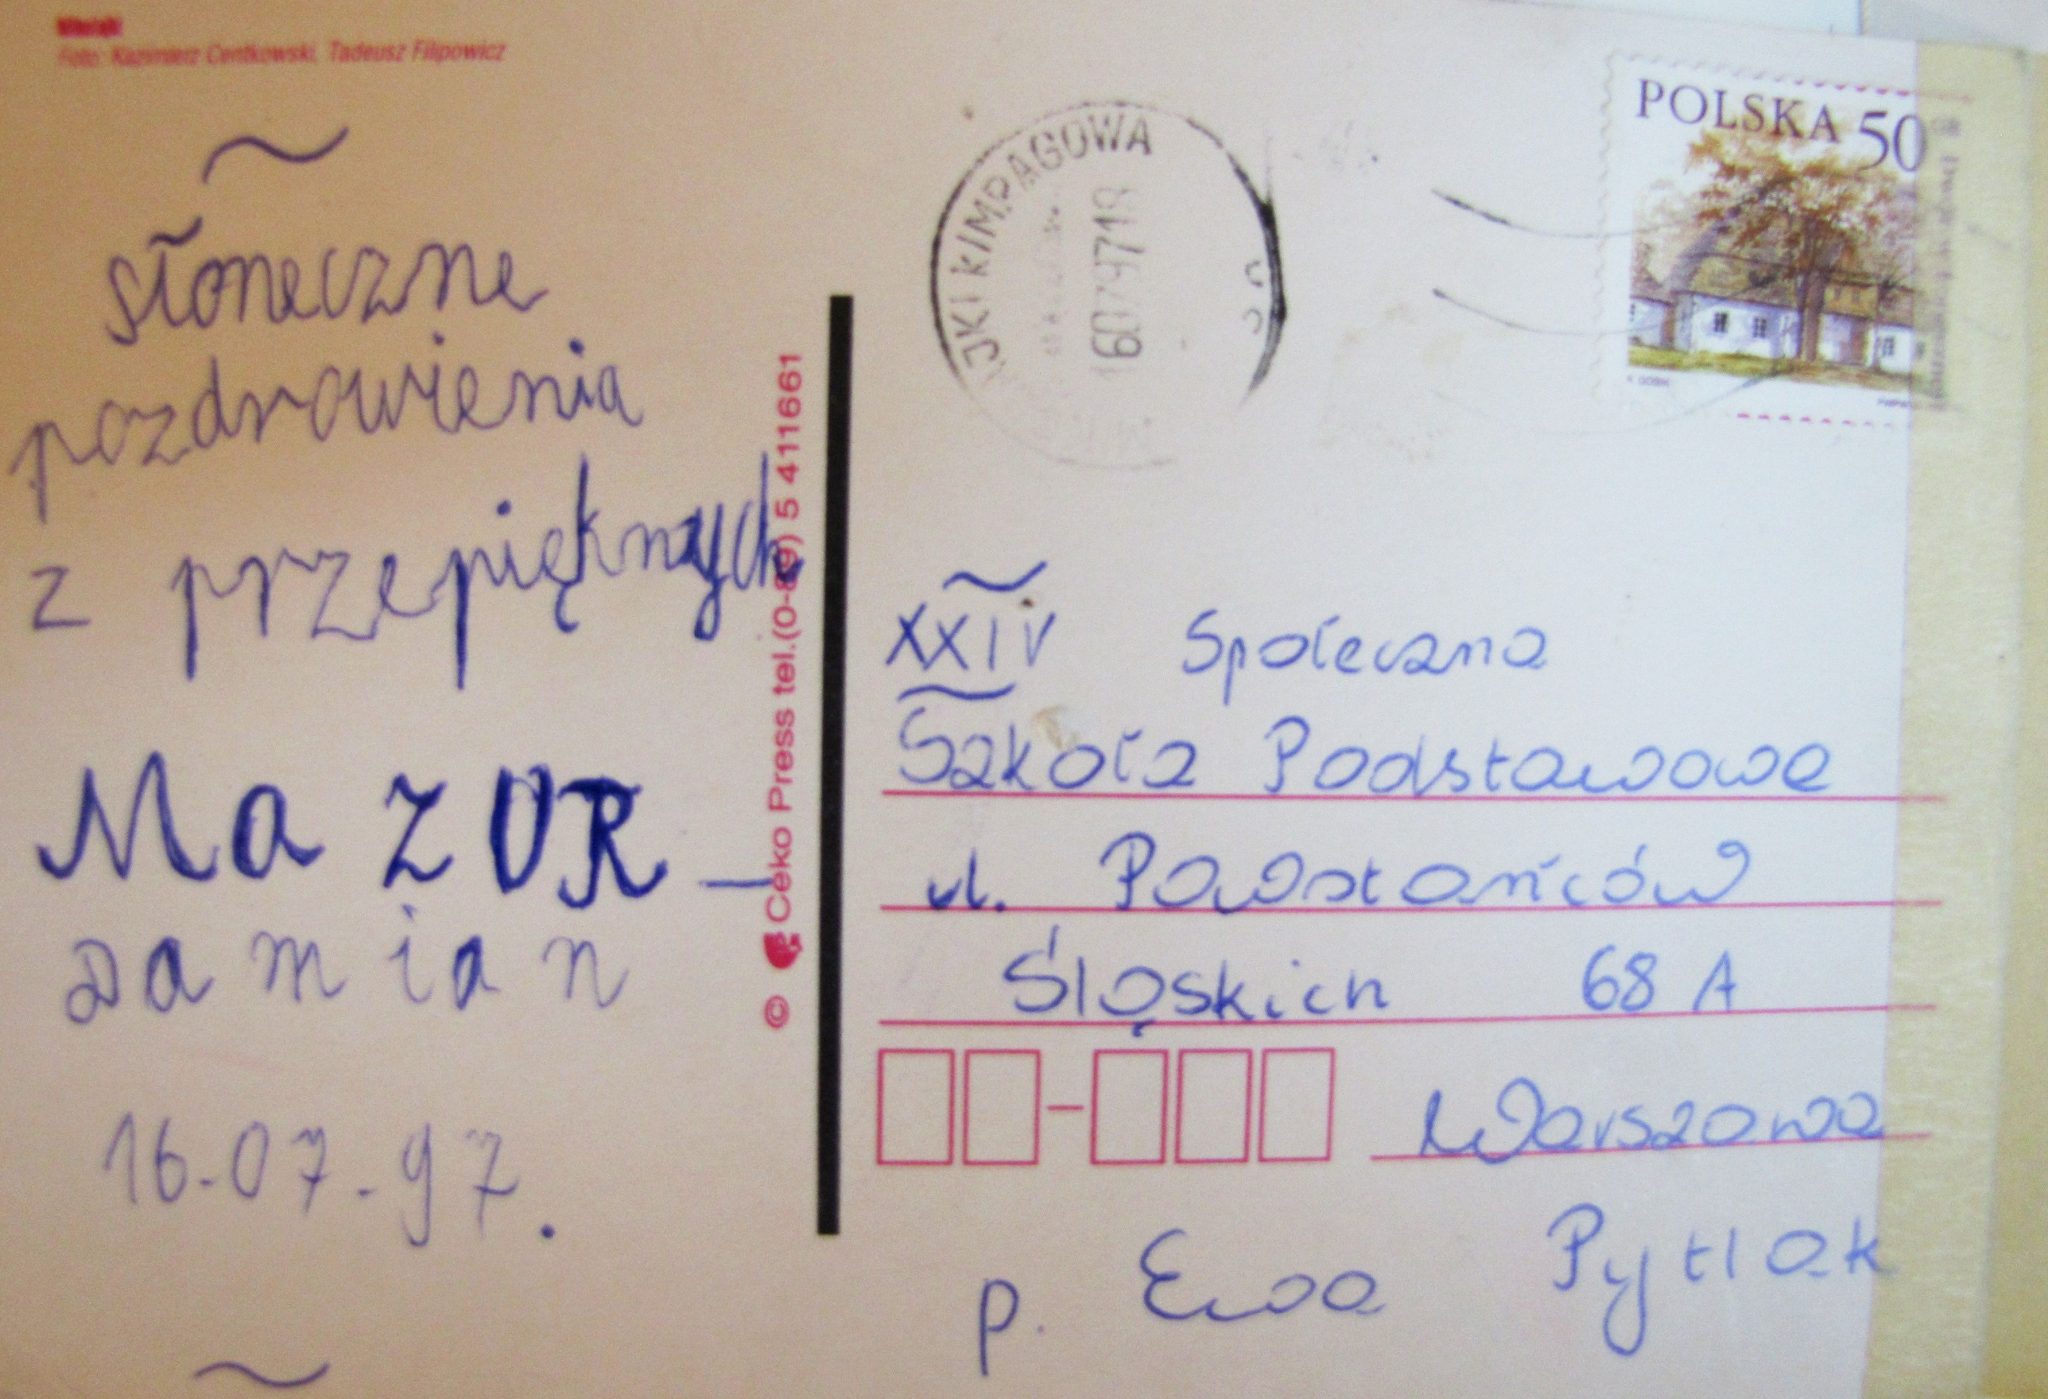 Mikołajki
Foto: Kazimierz Centkowski, Tadeusz Filipowicz
słoneczne
pozdrowienia
z przepięknych
MaZUR
Damian
16.07.97.
© Ceko Press tel.(0-89) 5 411661
JKI KIMPAGOWA
16079718
POLSKA 50
XXIV Społeczna
Szkoła Podstawowa
ul. Powstańców
Śląskich 68 A
Warszawa
p. Ewa Pytlak